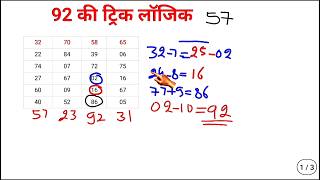 92 की ट्रिक लॉजिक 57
32 70 58 65
22 84 39 06
74 07 72 75
27 67 02 16
60 09 16 67
40 52 86 05
57 23 92 31
32-7=25-02
24-8=16
77+9=86
02-10=92
1 / 3